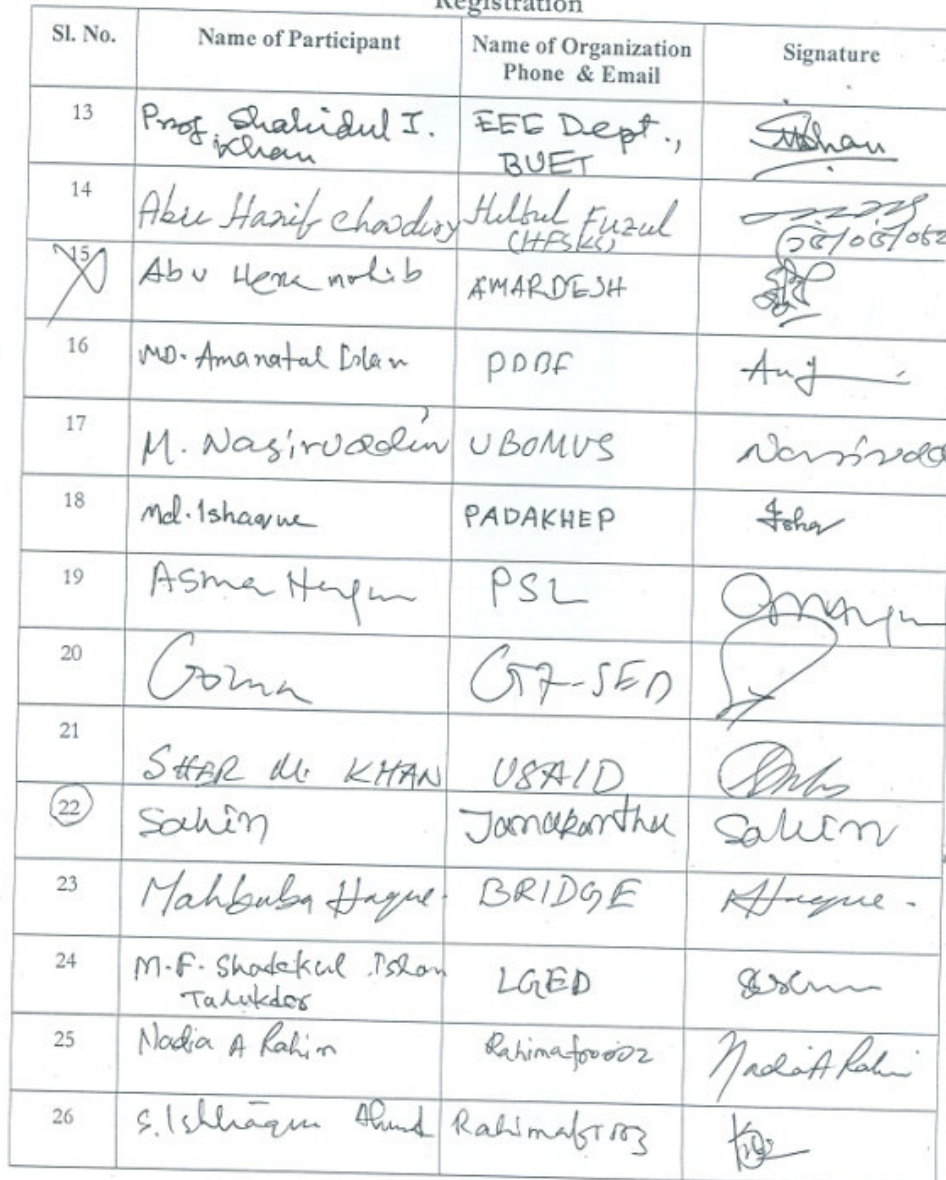 Registration
Sl. No. Name of Participant Name of Organization Phone & Email Signature
13 Prof. Shahidul I. Khan EEE Dept., BUET
14 Abu Hanif Chowdury Hilful Fuzul (HFSKS)
15 Abu Hena mohib AMARDESH
16 MD. Amanatul Islam PDBF
17 M. Nasiruddin UBOMUS
18 Md. Ishaque PADAKHEP
19 Asma PSL
20 GTZ-SED
21 SHER M. KHAN USAID
22 Sahin Janakantha Sahin
23 Mahbuba Haque. BRIDGE Haque.
24 M.F. Shadekul Islam Talukdar LGED
25 Nadia A Rahim Rahimafrooz Nadia A Rahi
26 S. Ishhaque Ahmed Rahimafrooz